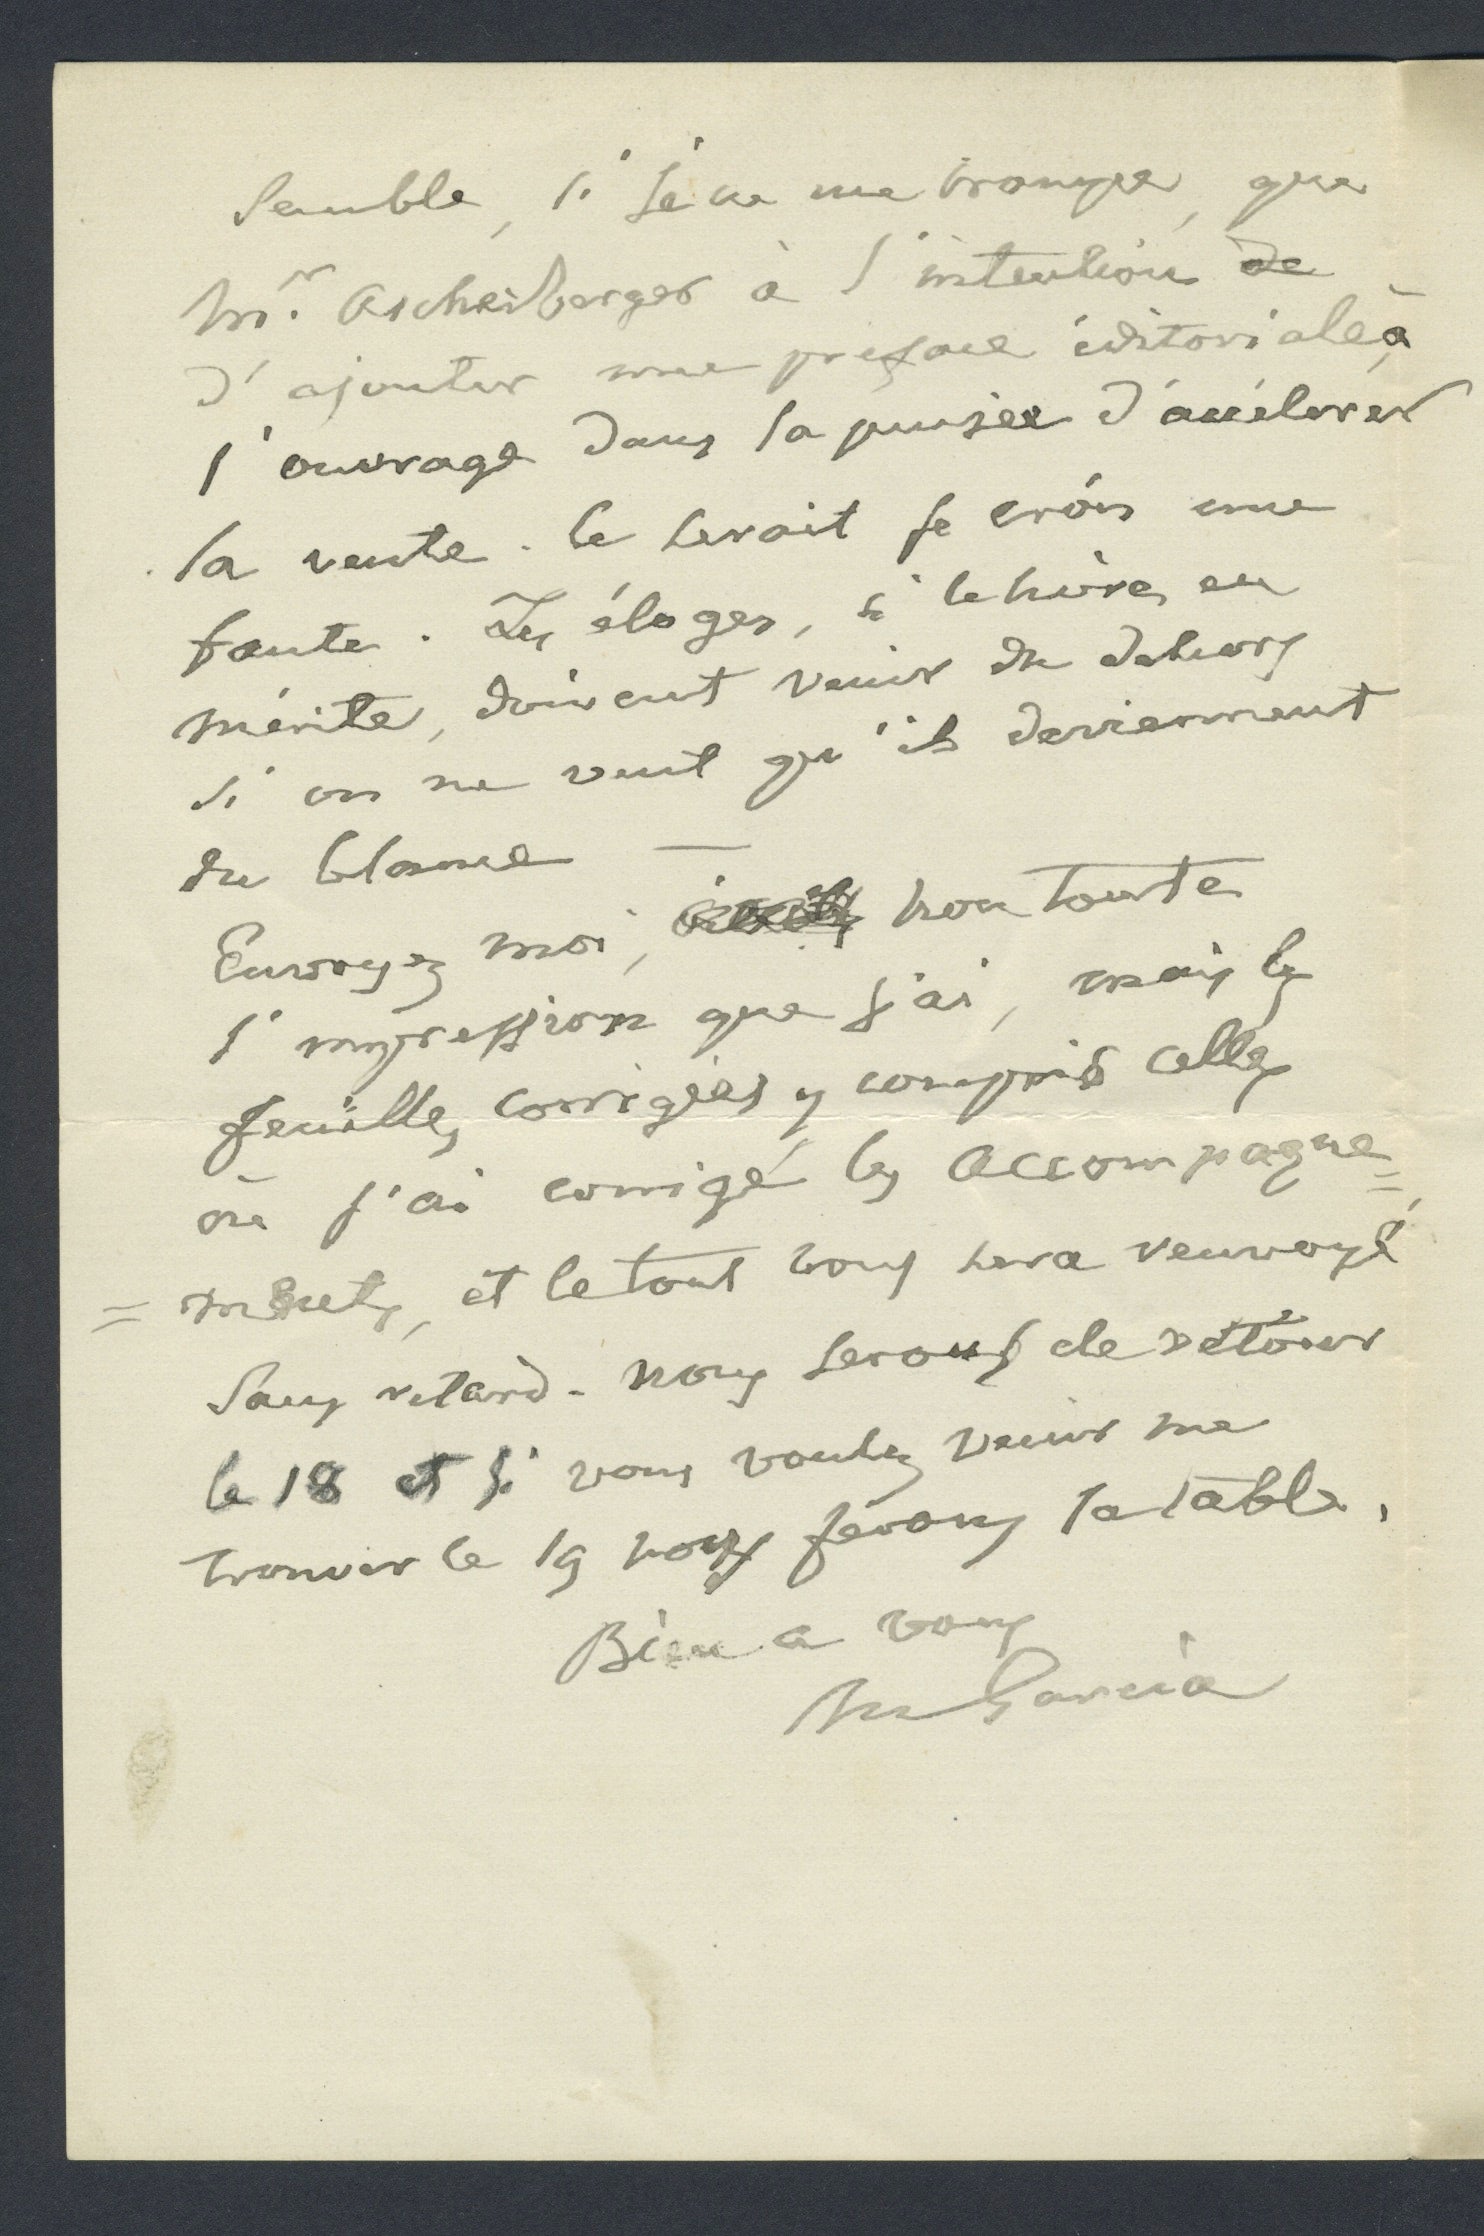 semble, si je ne me trompe, que
Mr. Ascherberger à l'intention de
d'ajouter une preface éditoriale à
l'ouvrage dans la pensée d'accélérer
la vente. Ce serait je crois une
faute. Les éloges, si le livre en
mérite, doivent venir du dehors
si on ne veut qu'ils deviennent
du blame —
Envoyez moi, non toute
l'impression que j'ai, mais les
feuilles corrigées y compris celles
où j'ai corrigé les accompagne=
=ments, et le tout vous sera renvoyé
sans retard. Nous serons de retour
le 18 et si vous voulez venir me
trouver le 19 nous ferons la table.
Bien a vous
M Garcia